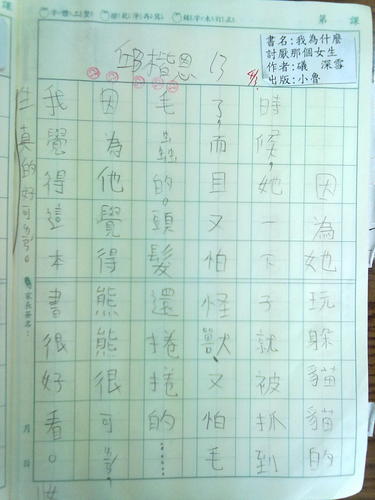 第 課
邱楷恩 13
書名:我為什麼
討厭那個女生
作者:礒 深雪
出版:小魯
因為她玩躲貓貓的
時候,她一下子就被抓到
了,而且又怕怪獸、又怕毛
毛蟲的。頭髮還捲捲的……
因為他覺得熊熊很可
我覺得這本書很好看。
生真的好可
家長簽名: 月 日